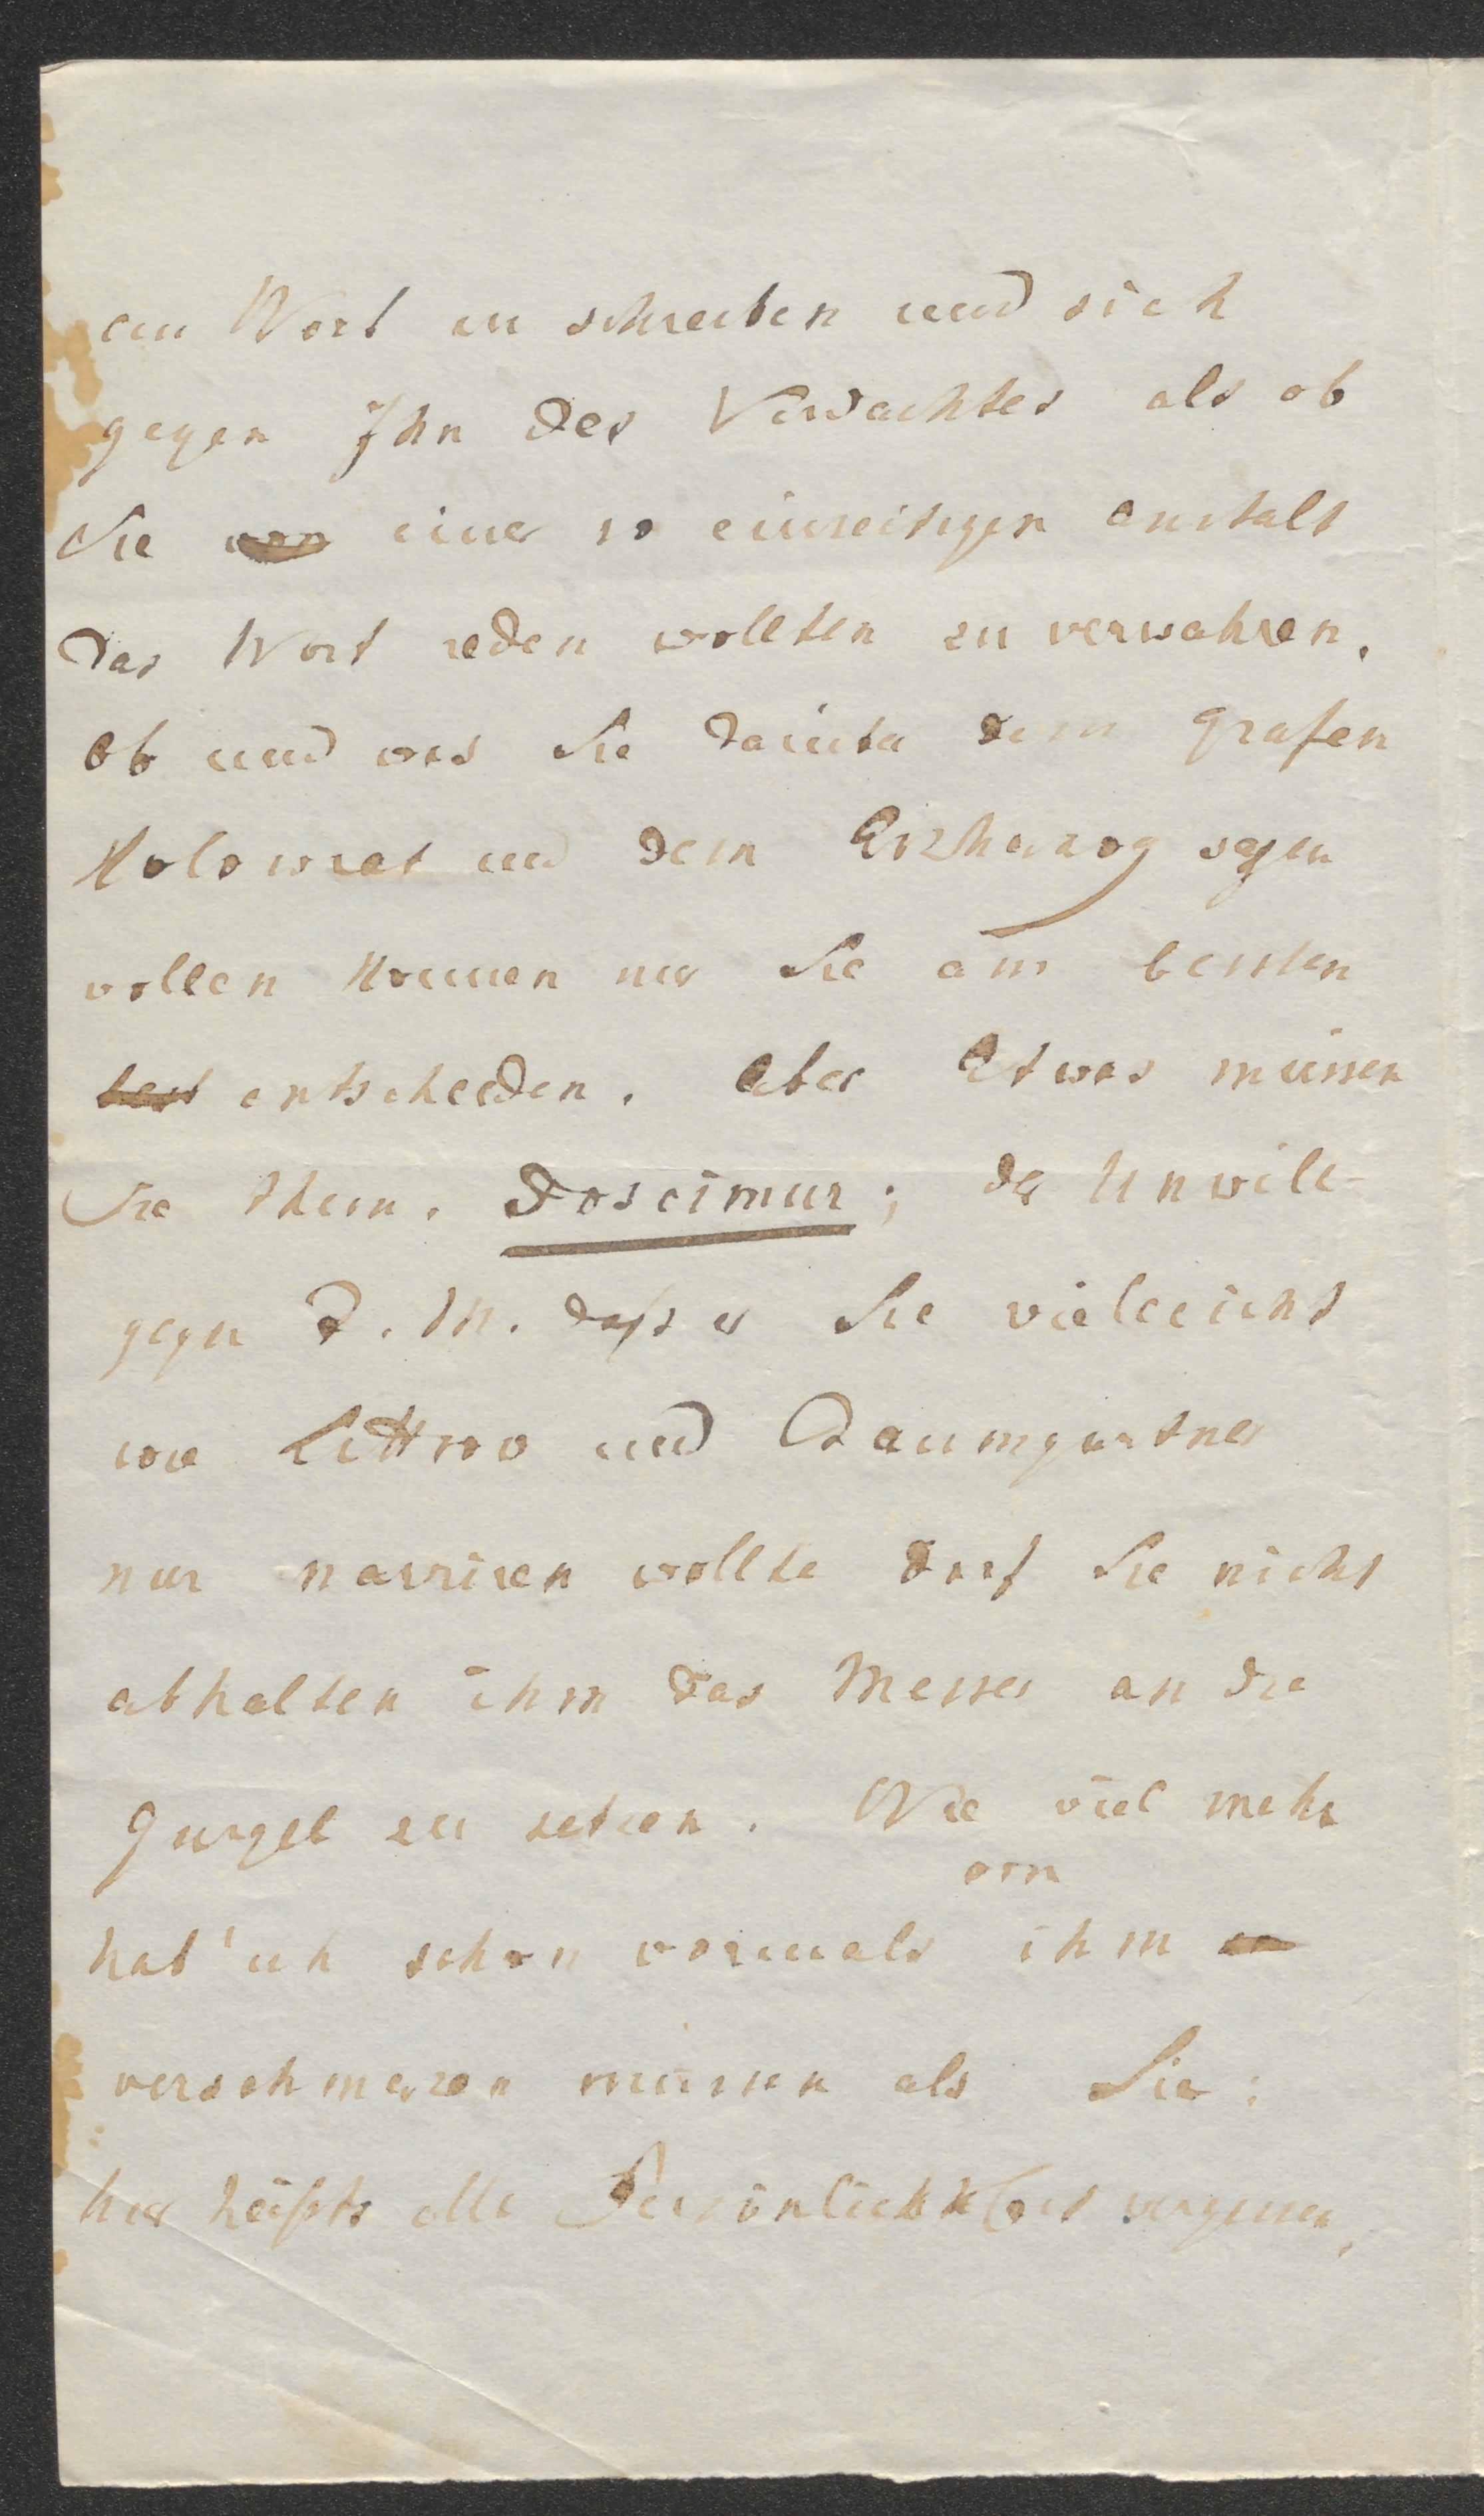 ein Wort zu schreiben und sich
gegen Ihn des Verdachtes als ob
Sie von einer so einseitigen Anstalt
das Wort reden wollten zu verwahren.
Ob und was Sie darüber dem Grafen
Kolowrat und dem Erzherzog sagen
wollen können nur Sie am besten
best entscheiden. Aber Etwas müssen
Sie thun. ; der Unwille
gegen F. M. daß er Sie vielleicht
wie Littrow und Baumgartner
nur narriren wollte darf Sie nicht
abhalten ihm das Messer an die
Gurgel zu setzen. Wie viel mehr
von
hab' ich schon vormals ihm
verschmerzen müssen als Sie:
hier heißts alle Persönlichkeit vergessen,